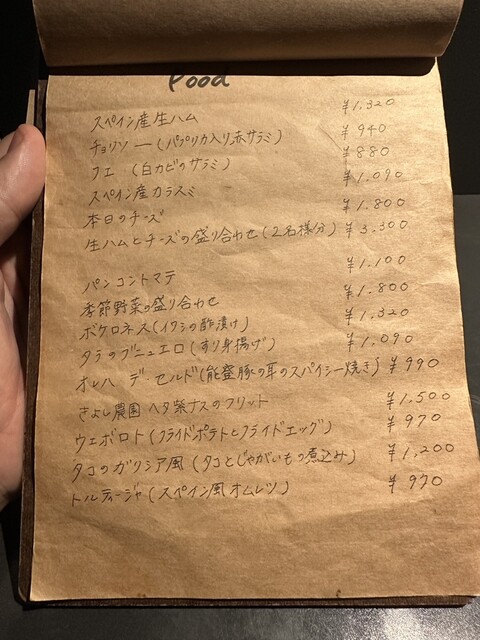 Food
スペイン産生ハム ¥1.320
チョリソー（パプリカ入り赤サラミ） ¥940
フエ（白カビのサラミ） ¥880
スペイン産カラスミ ¥1.090
本日のチーズ ¥1.800
生ハムとチーズの盛り合わせ（2名様分） ¥3.300
パンコントマテ ¥1.100
季節野菜の盛り合わせ ¥1.800
ボケロネス（イワシの酢漬け） ¥1.320
タラのブニュエロ（すり身揚げ） ¥1.090
オレハ デ・セルド（能登豚の耳のスパイシー焼き） ¥990
きよし農園 ヘタ紫ナスのフリット ¥1,500
ウエボロト（フライドポテトとフライドエッグ） ¥970
タコのガリシア風（タコとじゃがいもの煮込み） ¥1,200
トルティージャ（スペイン風オムレツ） ¥970